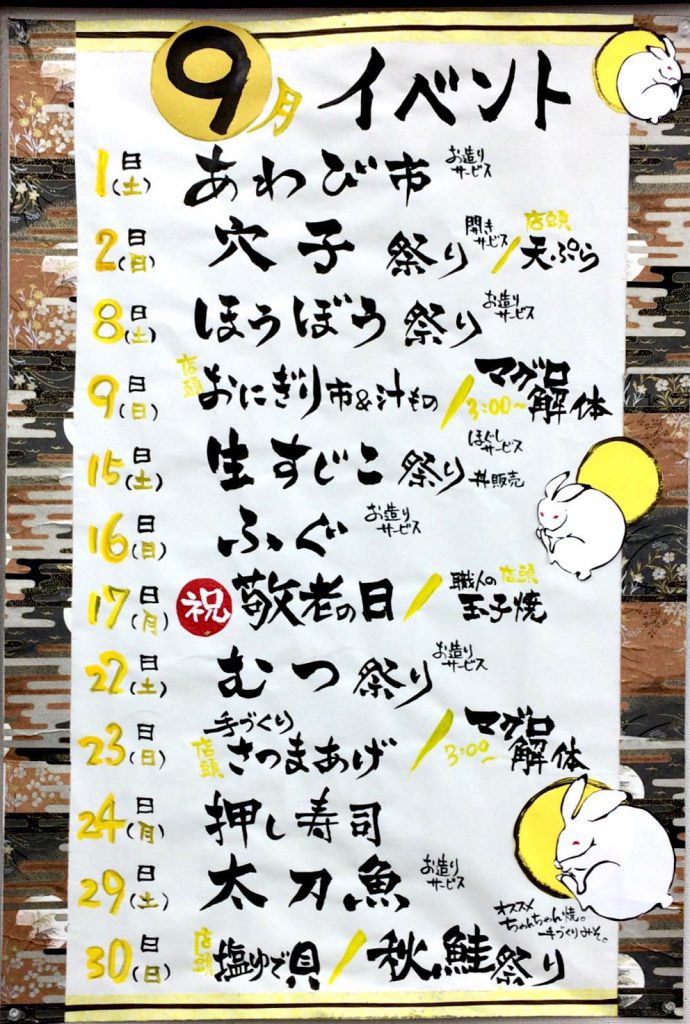 9月 イベント
1日(土) あわび市 お造りサービス
2日(日) 穴子祭り 開きサービス / 店頭 天ぷら
8日(土) ほうぼう祭り お造りサービス
9日(日) 店頭 おにぎり市&汁もの / 3:00〜 マグロ解体
15日(土) 生すじこ祭り ほぐしサービス 丼販売
16日(日) ふぐ お造りサービス
17日(月) 祝 敬老の日 / 職人の店頭玉子焼
22日(土) むつ祭り お造りサービス
23日(日) 店頭 手づくりさつまあげ / 3:00〜 マグロ解体
24日(月) 押し寿司
29日(土) 太刀魚 お造りサービス
30日(日) 店頭 塩ゆで貝 / 秋鮭祭り オススメちゃんちゃん焼。手づくりみそ。